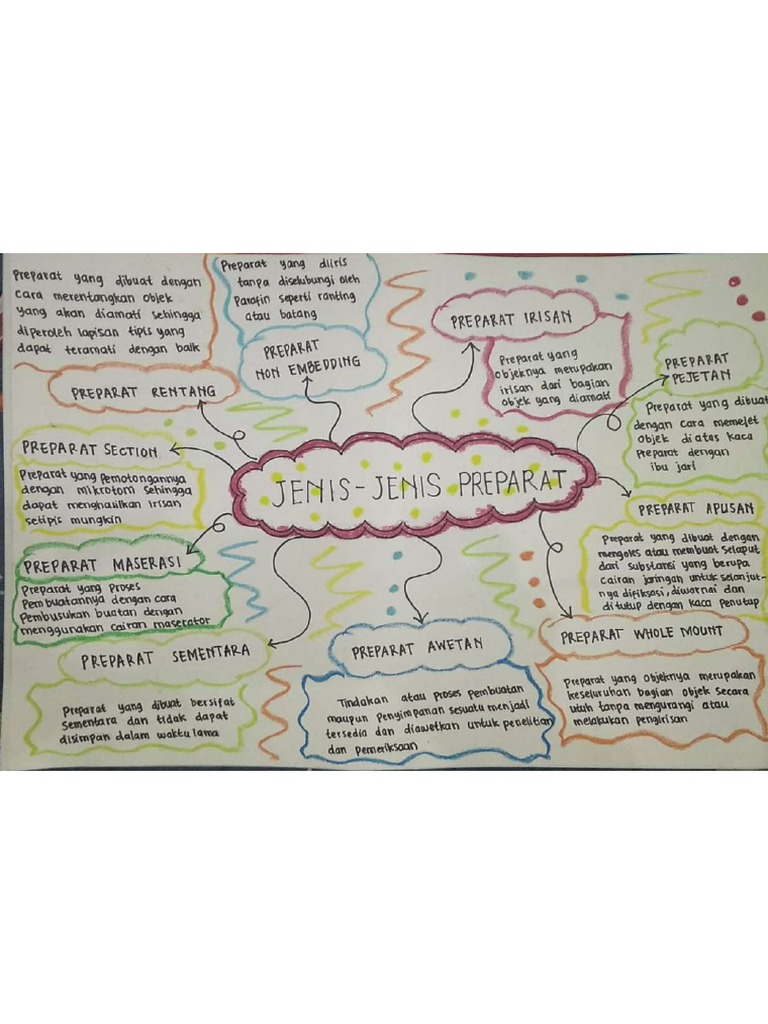 JENIS-JENIS PREPARAT
Preparat yang dibuat dengan
cara merentangkan objek
yang akan diamati sehingga
diperoleh lapisan tipis yang
dapat teramati dengan baik
PREPARAT RENTANG
Preparat yang diiris
tanpa diselubungi oleh
Parafin seperti ranting
atau batang
PREPARAT
NON EMBEDDING
PREPARAT IRISAN
Preparat yang
objeknya merupakan
irisan dari bagian
objek yang diamati
PREPARAT
PEJETAN
Preparat yang dibuat
dengan cara memejet
objek diatas kaca
Preparat dengan
ibu jari
PREPARAT SECTION
Preparat yang Pemotongannya
dengan mikrotom sehingga
dapat menghasilkan irisan
setipis mungkin
PREPARAT APUSAN
Preparat yang dibuat dengan
mengoles atau membuat selaput
dari substansi yang berupa
cairan jaringan untuk selanjut-
nya difiksasi, diwarnai dan
ditutup dengan kaca penutup
PREPARAT MASERASI
Preparat yang proses
Pembuatannya dengan cara
Pembusukan buatan dengan
menggunakan cairan maserator
PREPARAT SEMENTARA
Preparat yang dibuat bersifat
sementara dan tidak dapat
disimpan dalam waktu lama
PREPARAT AWETAN
Tindakan atau proses pembuatan
maupun penyimpanan sesuatu menjadi
tersedia dan diawetkan untuk penelitian
dan pemeriksaan
PREPARAT WHOLE MOUNT
Preparat yang objeknya merupakan
keseluruhan bagian objek secara
utuh tanpa mengurangi atau
melakukan pengirisan